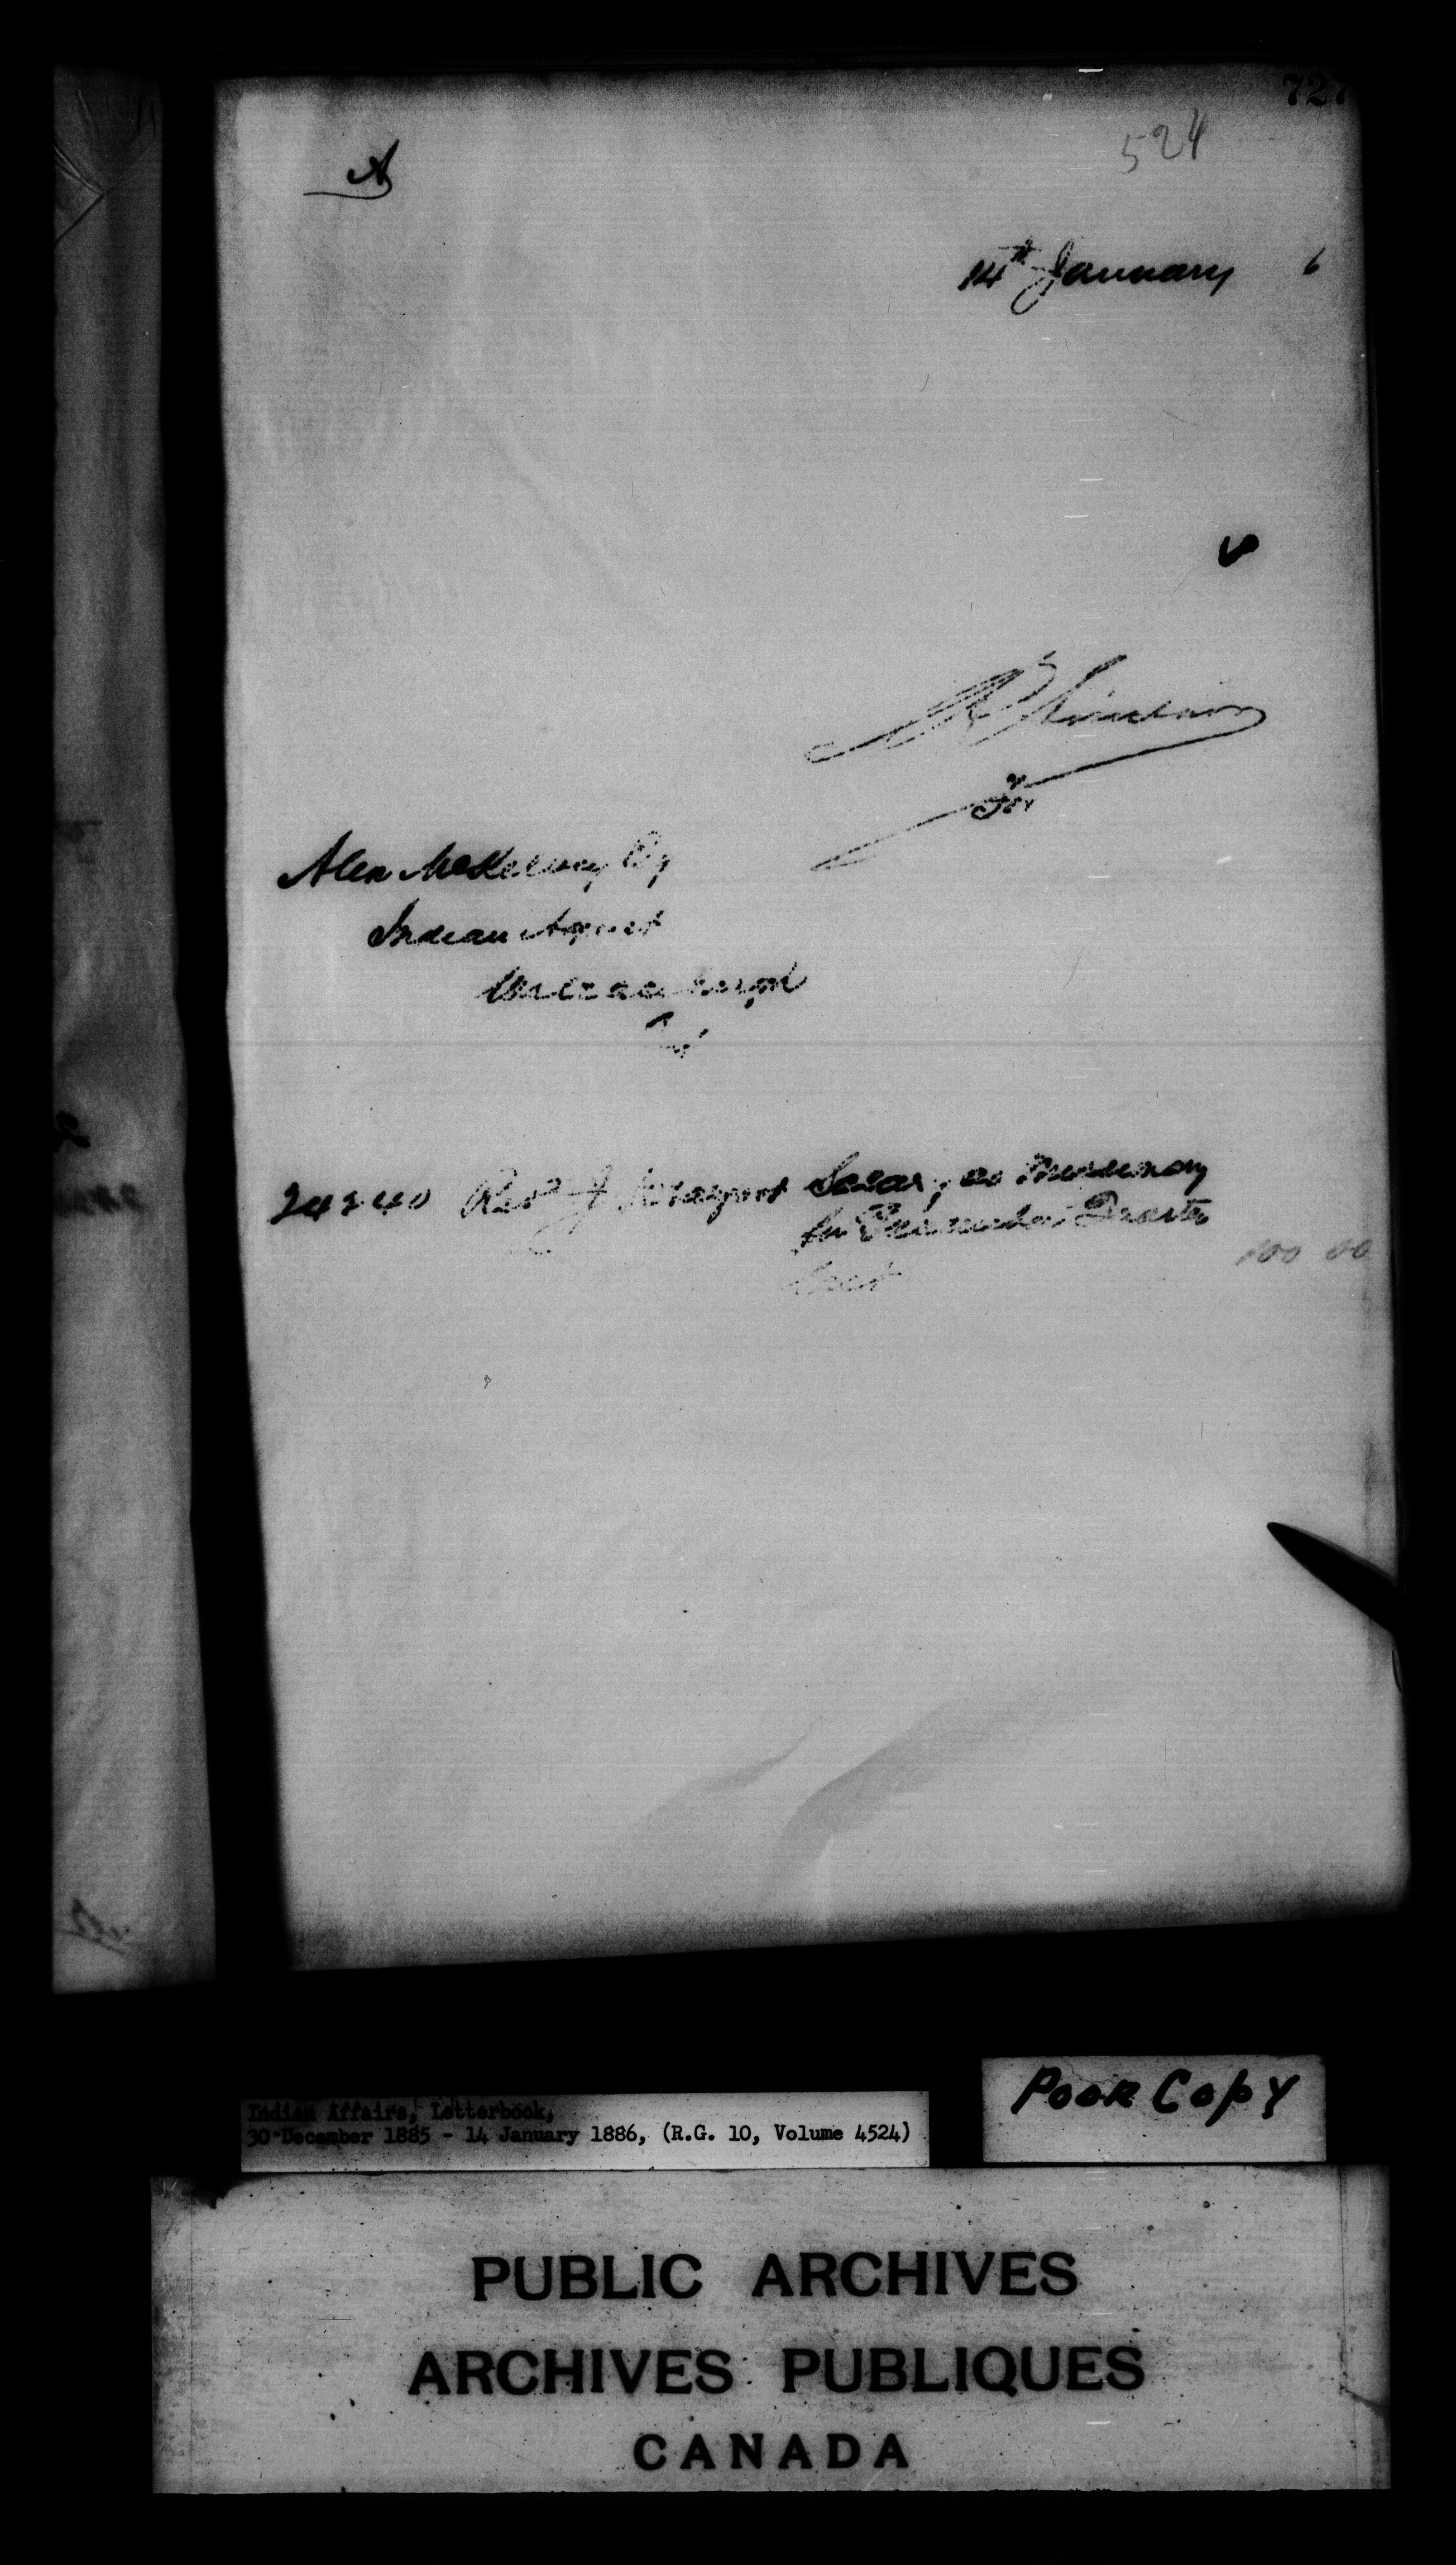 727
524
A
14th January 6
R Sinclair
For
Alex McKelvey Esq
Indian Agent
Wallaceburgh
Ont
24240 Rev J Salary as Missionary
for Quarter
100 00
Indian Affairs, Letterbook,
30 December 1885 - 14 January 1886, (R.G. 10, Volume 4524)
POOR COPY
PUBLIC ARCHIVES
ARCHIVES PUBLIQUES
CANADA